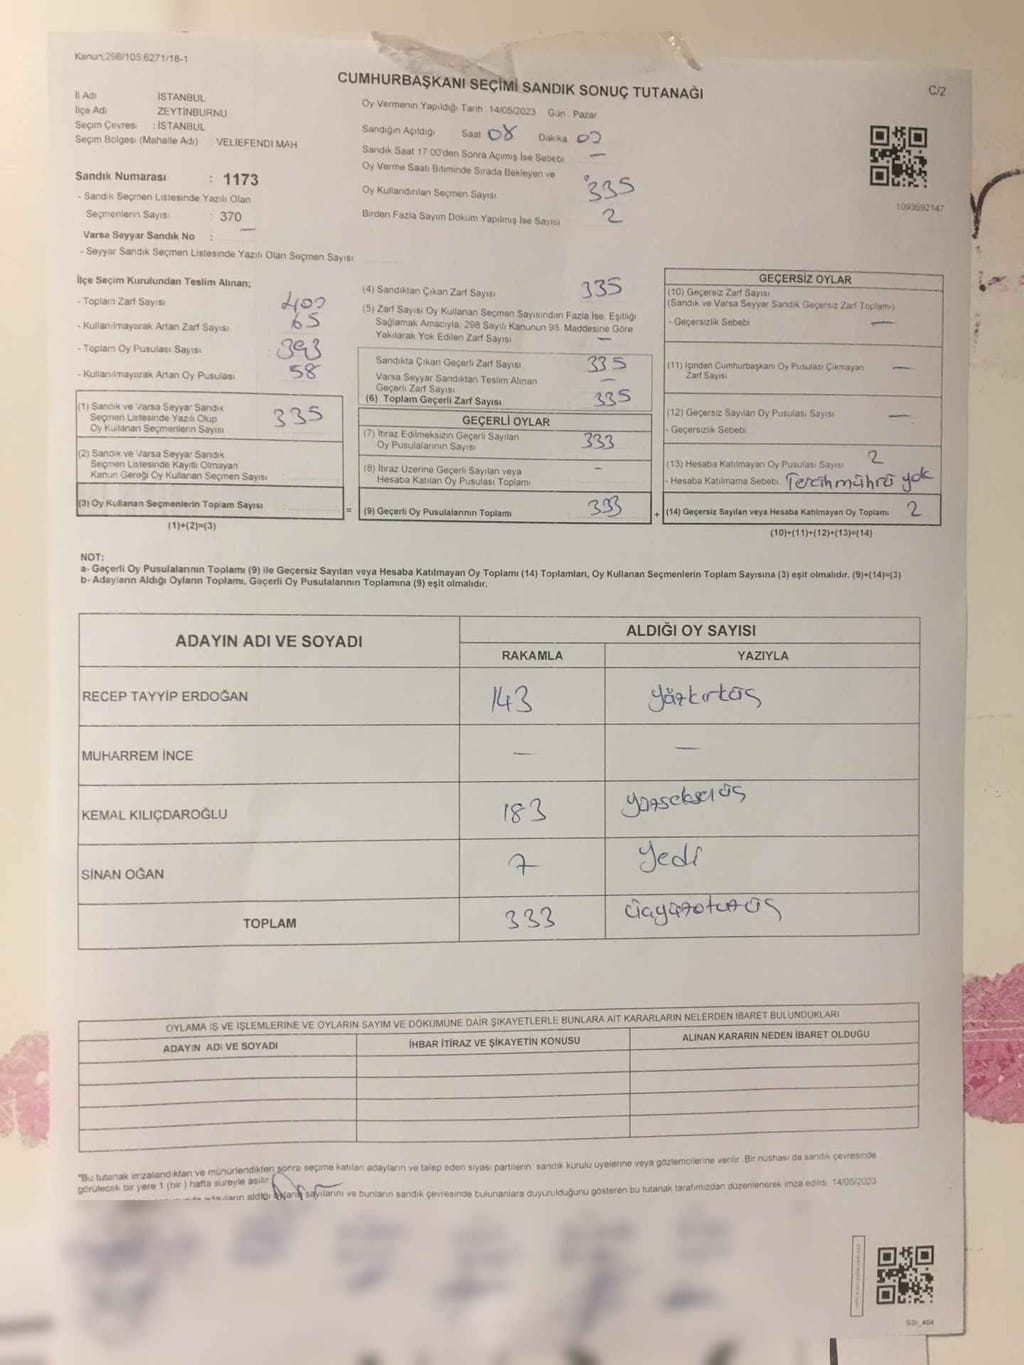 Kanun,298/105,6271/18-1
CUMHURBAŞKANI SEÇİMİ SANDIK SONUÇ TUTANAĞI
C/2
İl Adı İSTANBUL
İlçe Adı ZEYTİNBURNU
Seçim Çevresi : İSTANBUL
Seçim Bölgesi (Mahalle Adı) VELİEFENDİ MAH
Sandık Numarası : 1173
- Sandık Seçmen Listesinde Yazılı Olan
Seçmenlerin Sayısı : 370
Varsa Seyyar Sandık No : —
- Seyyar Sandık Seçmen Listesinde Yazılı Olan Seçmen Sayısı
Oy Vermenin Yapıldığı Tarih 14/05/2023 Gün : Pazar
Sandığın Açıldığı Saat 08 Dakika 00
Sandık Saat 17:00'den Sonra Açımış İse Sebebi —
Oy Verme Saati Bitiminde Sırada Bekleyen ve
Oy Kullandırılan Seçmen Sayısı 335
Birden Fazla Sayım Döküm Yapılmış İse Sayısı 2
1093692147
İlçe Seçim Kurulundan Teslim Alınan;
- Toplam Zarf Sayısı 400
- Kullanılmayarak Artan Zarf Sayısı 65
- Toplam Oy Pusulası Sayısı 393
- Kullanılmayarak Artan Oy Pusulası 58
(1) Sandık ve Varsa Seyyar Sandık
Seçmen Listesinde Yazılı Olup
Oy Kullanan Seçmenlerin Sayısı 335
(2) Sandık ve Varsa Seyyar Sandık
Seçmen Listesinde Kayıtlı Olmayan
Kanun Gereği Oy Kullanan Seçmen Sayısı
(3) Oy Kullanan Seçmenlerin Toplam Sayısı
(1)+(2)=(3)
=
(4) Sandıktan Çıkan Zarf Sayısı 335
(5) Zarf Sayısı Oy Kullanan Seçmen Sayısından Fazla İse, Eşitliği
Sağlamak Amacıyla, 298 Sayılı Kanunun 98. Maddesine Göre
Yakılarak Yok Edilen Zarf Sayısı —
Sandıkta Çıkan Geçerli Zarf Sayısı 335
Varsa Seyyar Sandıktan Teslim Alınan
Geçerli Zarf Sayısı —
(6) Toplam Geçerli Zarf Sayısı 335
GEÇERLİ OYLAR
(7) İtiraz Edilmeksizin Geçerli Sayılan
Oy Pusulalarının Sayısı 333
(8) İtiraz Üzerine Geçerli Sayılan veya
Hesaba Katılan Oy Pusulası Toplamı –
(9) Geçerli Oy Pusulalarının Toplamı 333
+
GEÇERSİZ OYLAR
(10) Geçersiz Zarf Sayısı
(Sandık ve Varsa Seyyar Sandık Geçersiz Zarf Toplamı)
- Geçersizlik Sebebi —
(11) İçinden Cumhurbaşkanı Oy Pusulası Çıkmayan
Zarf Sayısı —
(12) Geçersiz Sayılan Oy Pusulası Sayısı —
- Geçersizlik Sebebi
(13) Hesaba Katılmayan Oy Pusulası Sayısı 2
- Hesaba Katılmama Sebebi Tercih mührü yok
(14) Geçersiz Sayılan veya Hesaba Katılmayan Oy Toplamı 2
(10)+(11)+(12)+(13)=(14)
NOT:
a- Geçerli Oy Pusulalarının Toplamı (9) ile Geçersiz Sayılan veya Hesaba Katılmayan Oy Toplamı (14) Toplamları, Oy Kullanan Seçmenlerin Toplam Sayısına (3) eşit olmalıdır. (9)+(14)=(3)
b- Adayların Aldığı Oyların Toplamı, Geçerli Oy Pusulalarının Toplamına (9) eşit olmalıdır.
ADAYIN ADI VE SOYADI ALDIĞI OY SAYISI
RAKAMLA YAZIYLA
RECEP TAYYİP ERDOĞAN 143 yüzkırküç
MUHARREM İNCE — —
KEMAL KILIÇDAROĞLU 183 yüzseksenüç
SİNAN OĞAN 7 yedi
TOPLAM 333 üçyüzotuzüç
OYLAMA İŞ VE İŞLEMLERİNE VE OYLARIN SAYIM VE DÖKÜMÜNE DAİR ŞİKAYETLERLE BUNLARA AİT KARARLARIN NELERDEN İBARET BULUNDUKLARI
ADAYIN ADI VE SOYADI İHBAR İTİRAZ VE ŞİKAYETİN KONUSU ALINAN KARARIN NEDEN İBARET OLDUĞU
*Bu tutanak imzalandıktan ve mühürlendikten sonra seçime katılan adayların ve talep eden siyasi partilerin sandık kurulu üyelerine veya gözlemcilerine verilir. Bir nüshası da sandık çevresinde
görülecek bir yere 1 (bir) hafta süreyle asılır.
adayların aldığı sayılarını ve bunların sandık çevresinde bulunanlara duyurulduğunu gösteren bu tutanak tarafımızdan düzenlenerek imza edildi. 14/05/2023